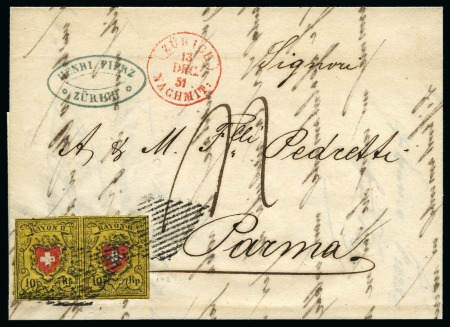 ZÜRICH
13
DEC.
51
NACHMIT.
HENRI PIERZ
ZÜRICH
Signori
A & M. Flli Pedretti
Parma
RAYON II. RAYON II.
10 Rp. 10 Rp.